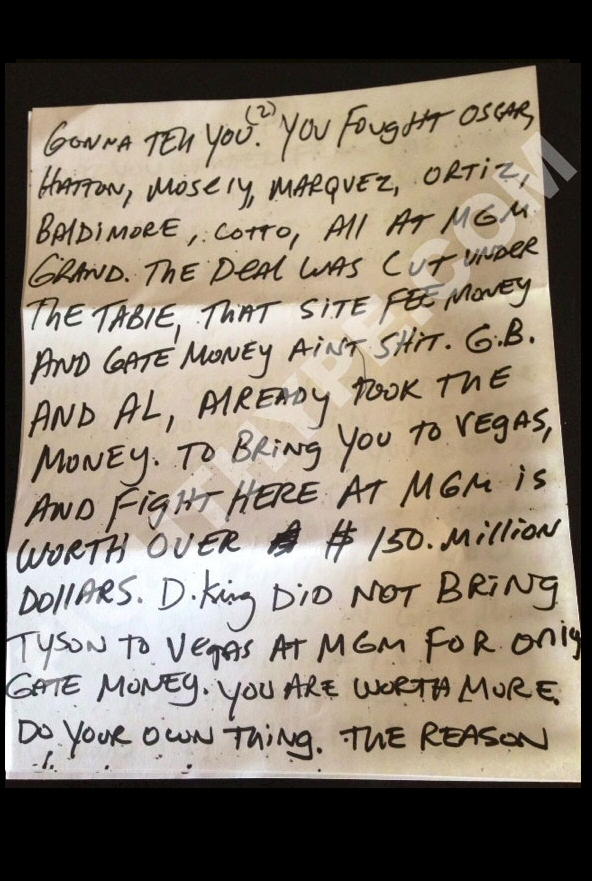 (2)
GONNA TELL YOU. YOU FOUGHT OSCAR,
HATTON, MOSELY, MARQUEZ, ORTIZ,
BALDIMORE, COTTO, All AT MGM
GRAND. THE DEAL WAS CUT UNDER
THE TABLE, THAT SITE FEE MONEY
AND GATE MONEY AINT SHIT. G.B.
AND AL, AlREADY TOOK THE
MONEY. TO BRING YOU TO VEGAS,
AND FIGHT HERE AT MGM is
WORTH OVER $150. Million
DOllARS. D. King DiD NOT BRING
TYSON TO VEGAS AT MGM FOR only
GATE MONEY. YOU ARE WORTH MORE.
DO YOUR OWN THING. THE REASON